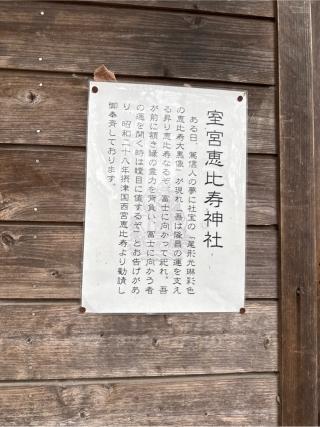 室宮恵比寿神社
ある日、篤信人の夢に社宝の「尾形光琳彩色
の恵比寿大黒像」が現れ「吾は隆昌の運を支え
る昇り恵比寿なるぞ。富士に向かって祀れ。吾
が前に額き縁の霊力を背負い、富士に向かう者
の運を開く時は瞠目に値するぞ」とお告げがあ
り、昭和二十八年摂津国西宮恵比寿より勧請し
御奉斉しております。